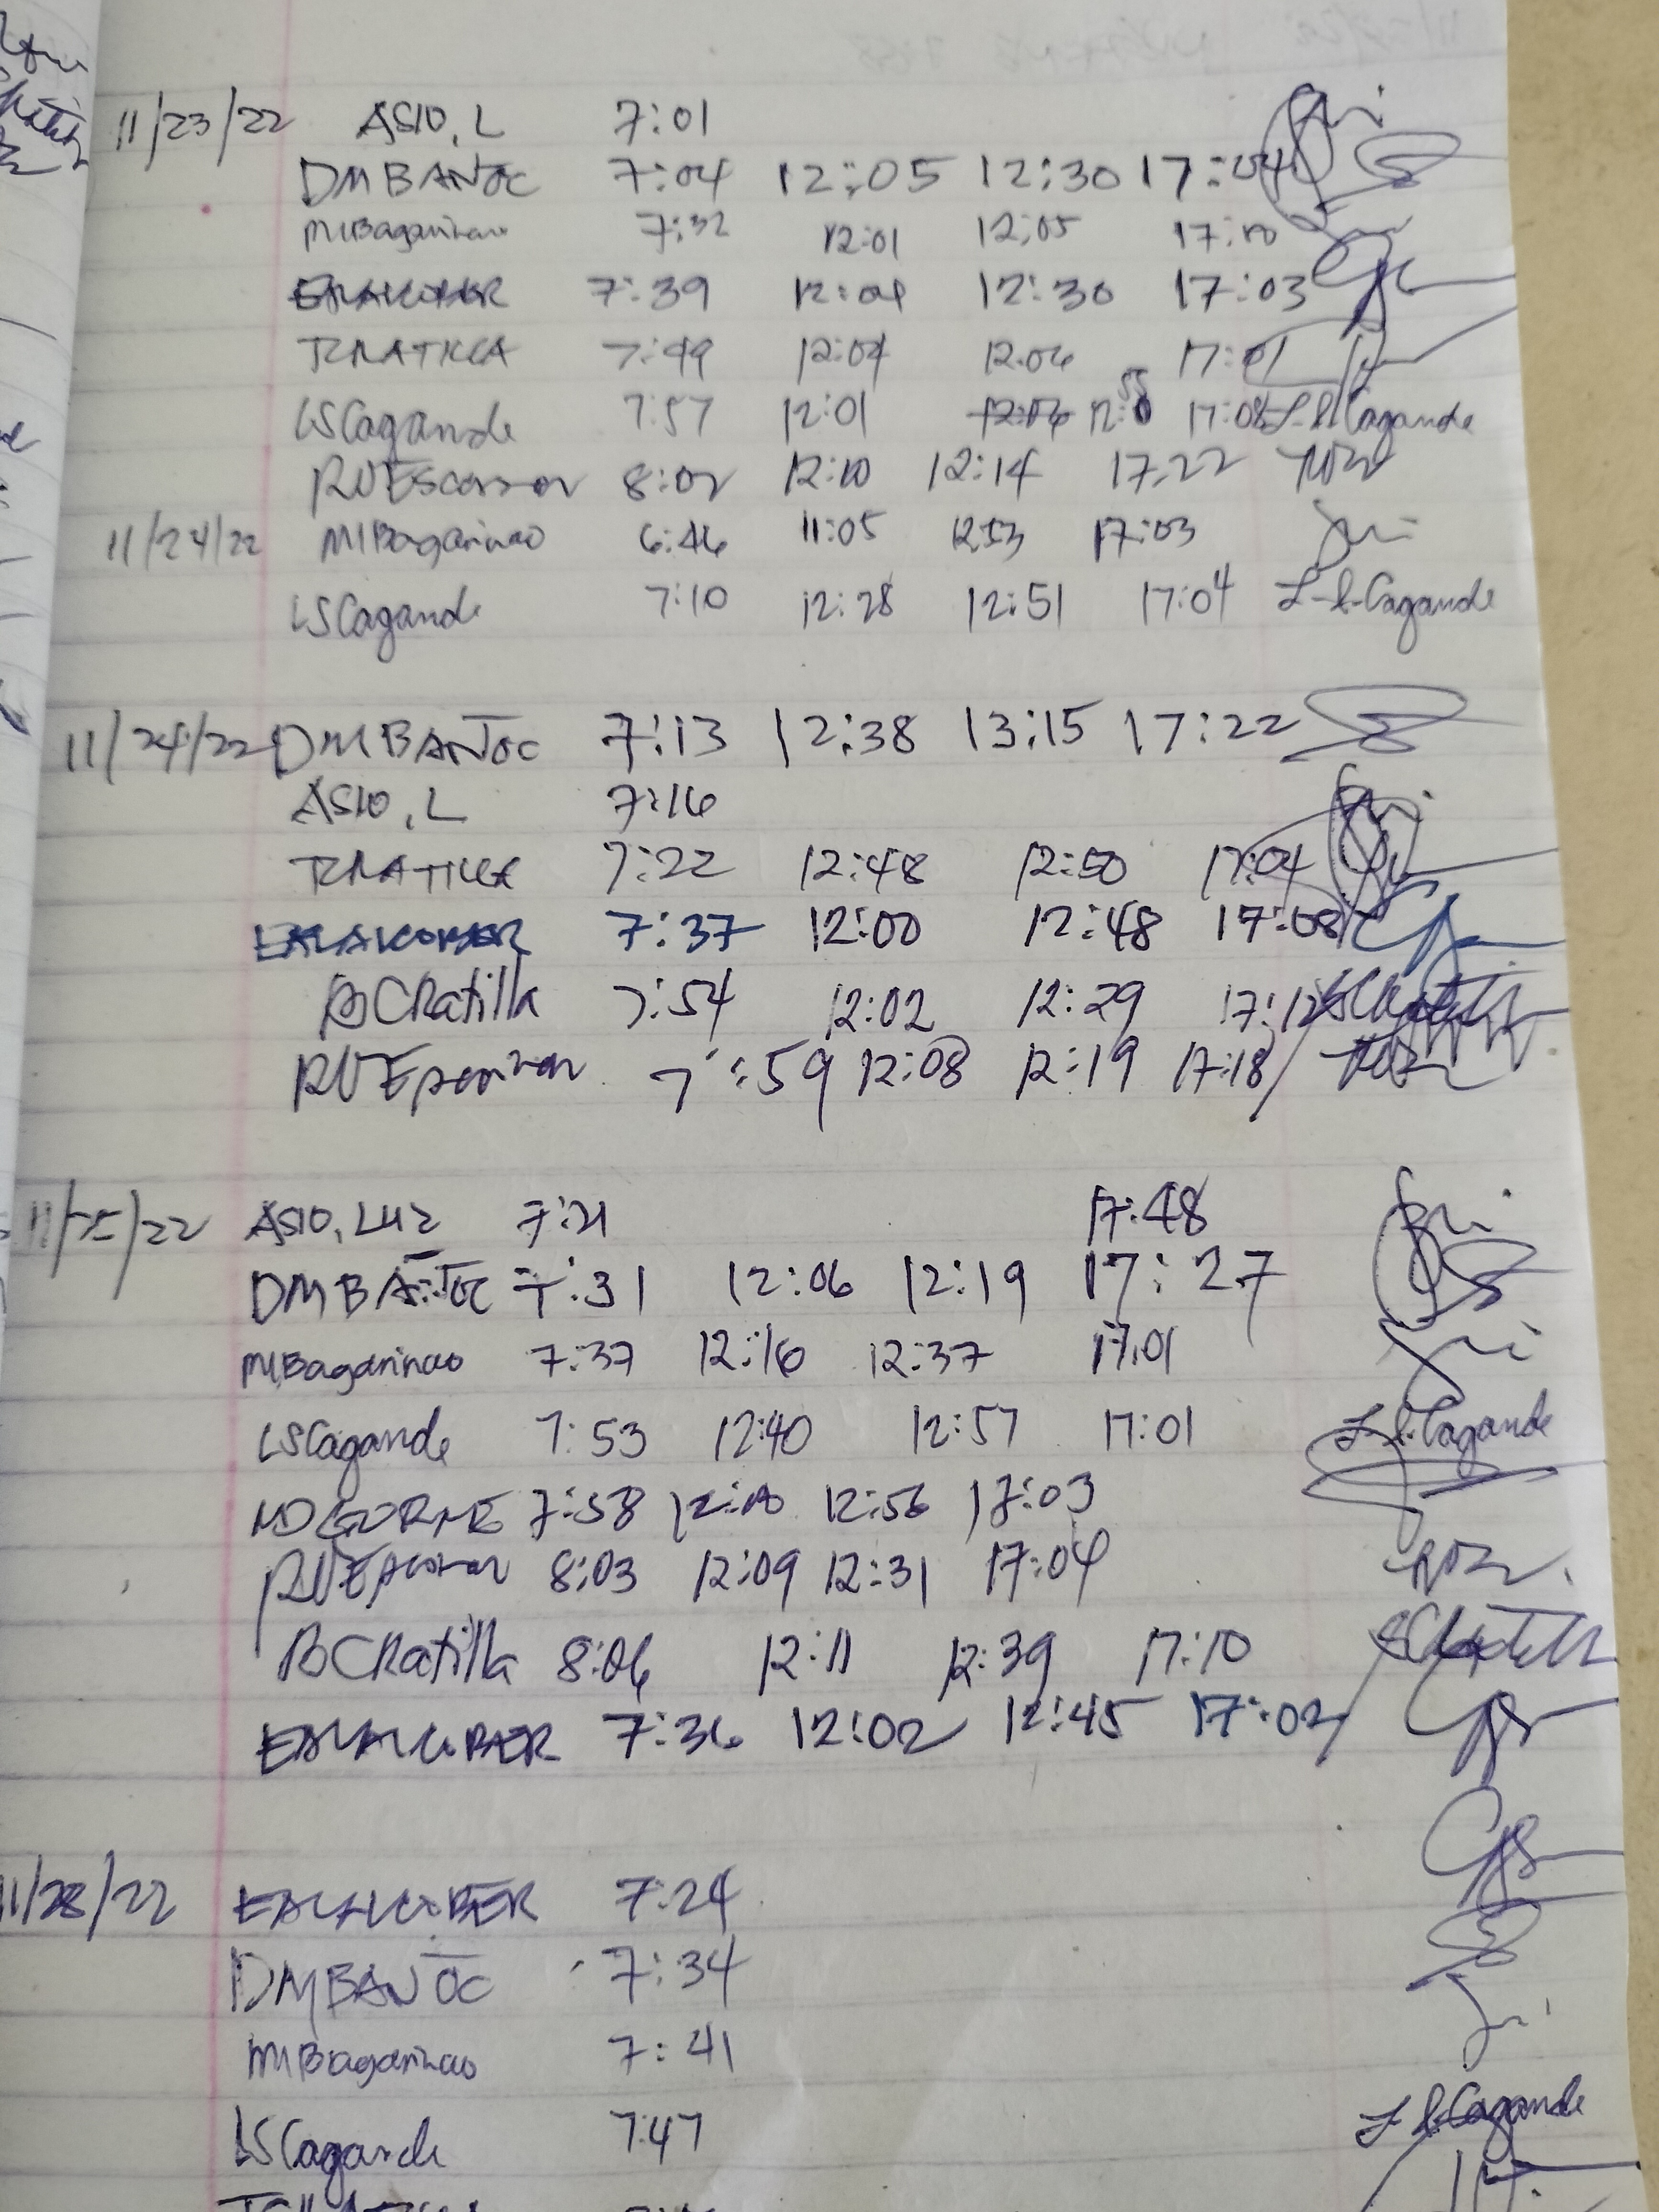 11/23/22 ASIO, L 7:01
DMBANTOC 7:04 12:05 12:30 17:04
MIBagarinao 7:32 12:01 12:05 17:10
7:39 12:04 12:30 17:03
7:49 12:04 12:06 17:01
LSCagande 7:57 12:01 12:06 12:55 17:08 L.S.Cagande
8:02 12:10 12:14 17:22
11/24/22 MIBagarinao 6:46 11:05 12:53 17:03
LSCagande 7:10 12:28 12:51 17:04 L.S.Cagande
11/24/22 DMBANTOC 7:13 12:38 13:15 17:22
ASIO, L 7:16
7:22 12:48 12:50 17:04
7:37 12:00 12:48 17:08
BCRatilla 7:54 12:02 12:29 17:12
7:59 12:08 12:19 17:18
11/25/22 ASIO, LUZ 7:21 17:48
DMBANTOC 7:31 12:06 12:19 17:27
MIBagarinao 7:37 12:16 12:37 17:01
LSCagande 7:53 12:40 12:57 17:01 L.S.Cagande
7:58 12:10 12:56 17:03
8:03 12:09 12:31 17:04
BCRatilla 8:06 12:11 12:39 17:10
7:36 12:02 12:45 17:02
11/28/22 7:24
DMBANTOC 7:34
MIBagarinao 7:41
LSCagande 7:47 L.S.Cagande